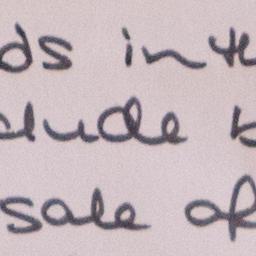 ds in
clude
sale of